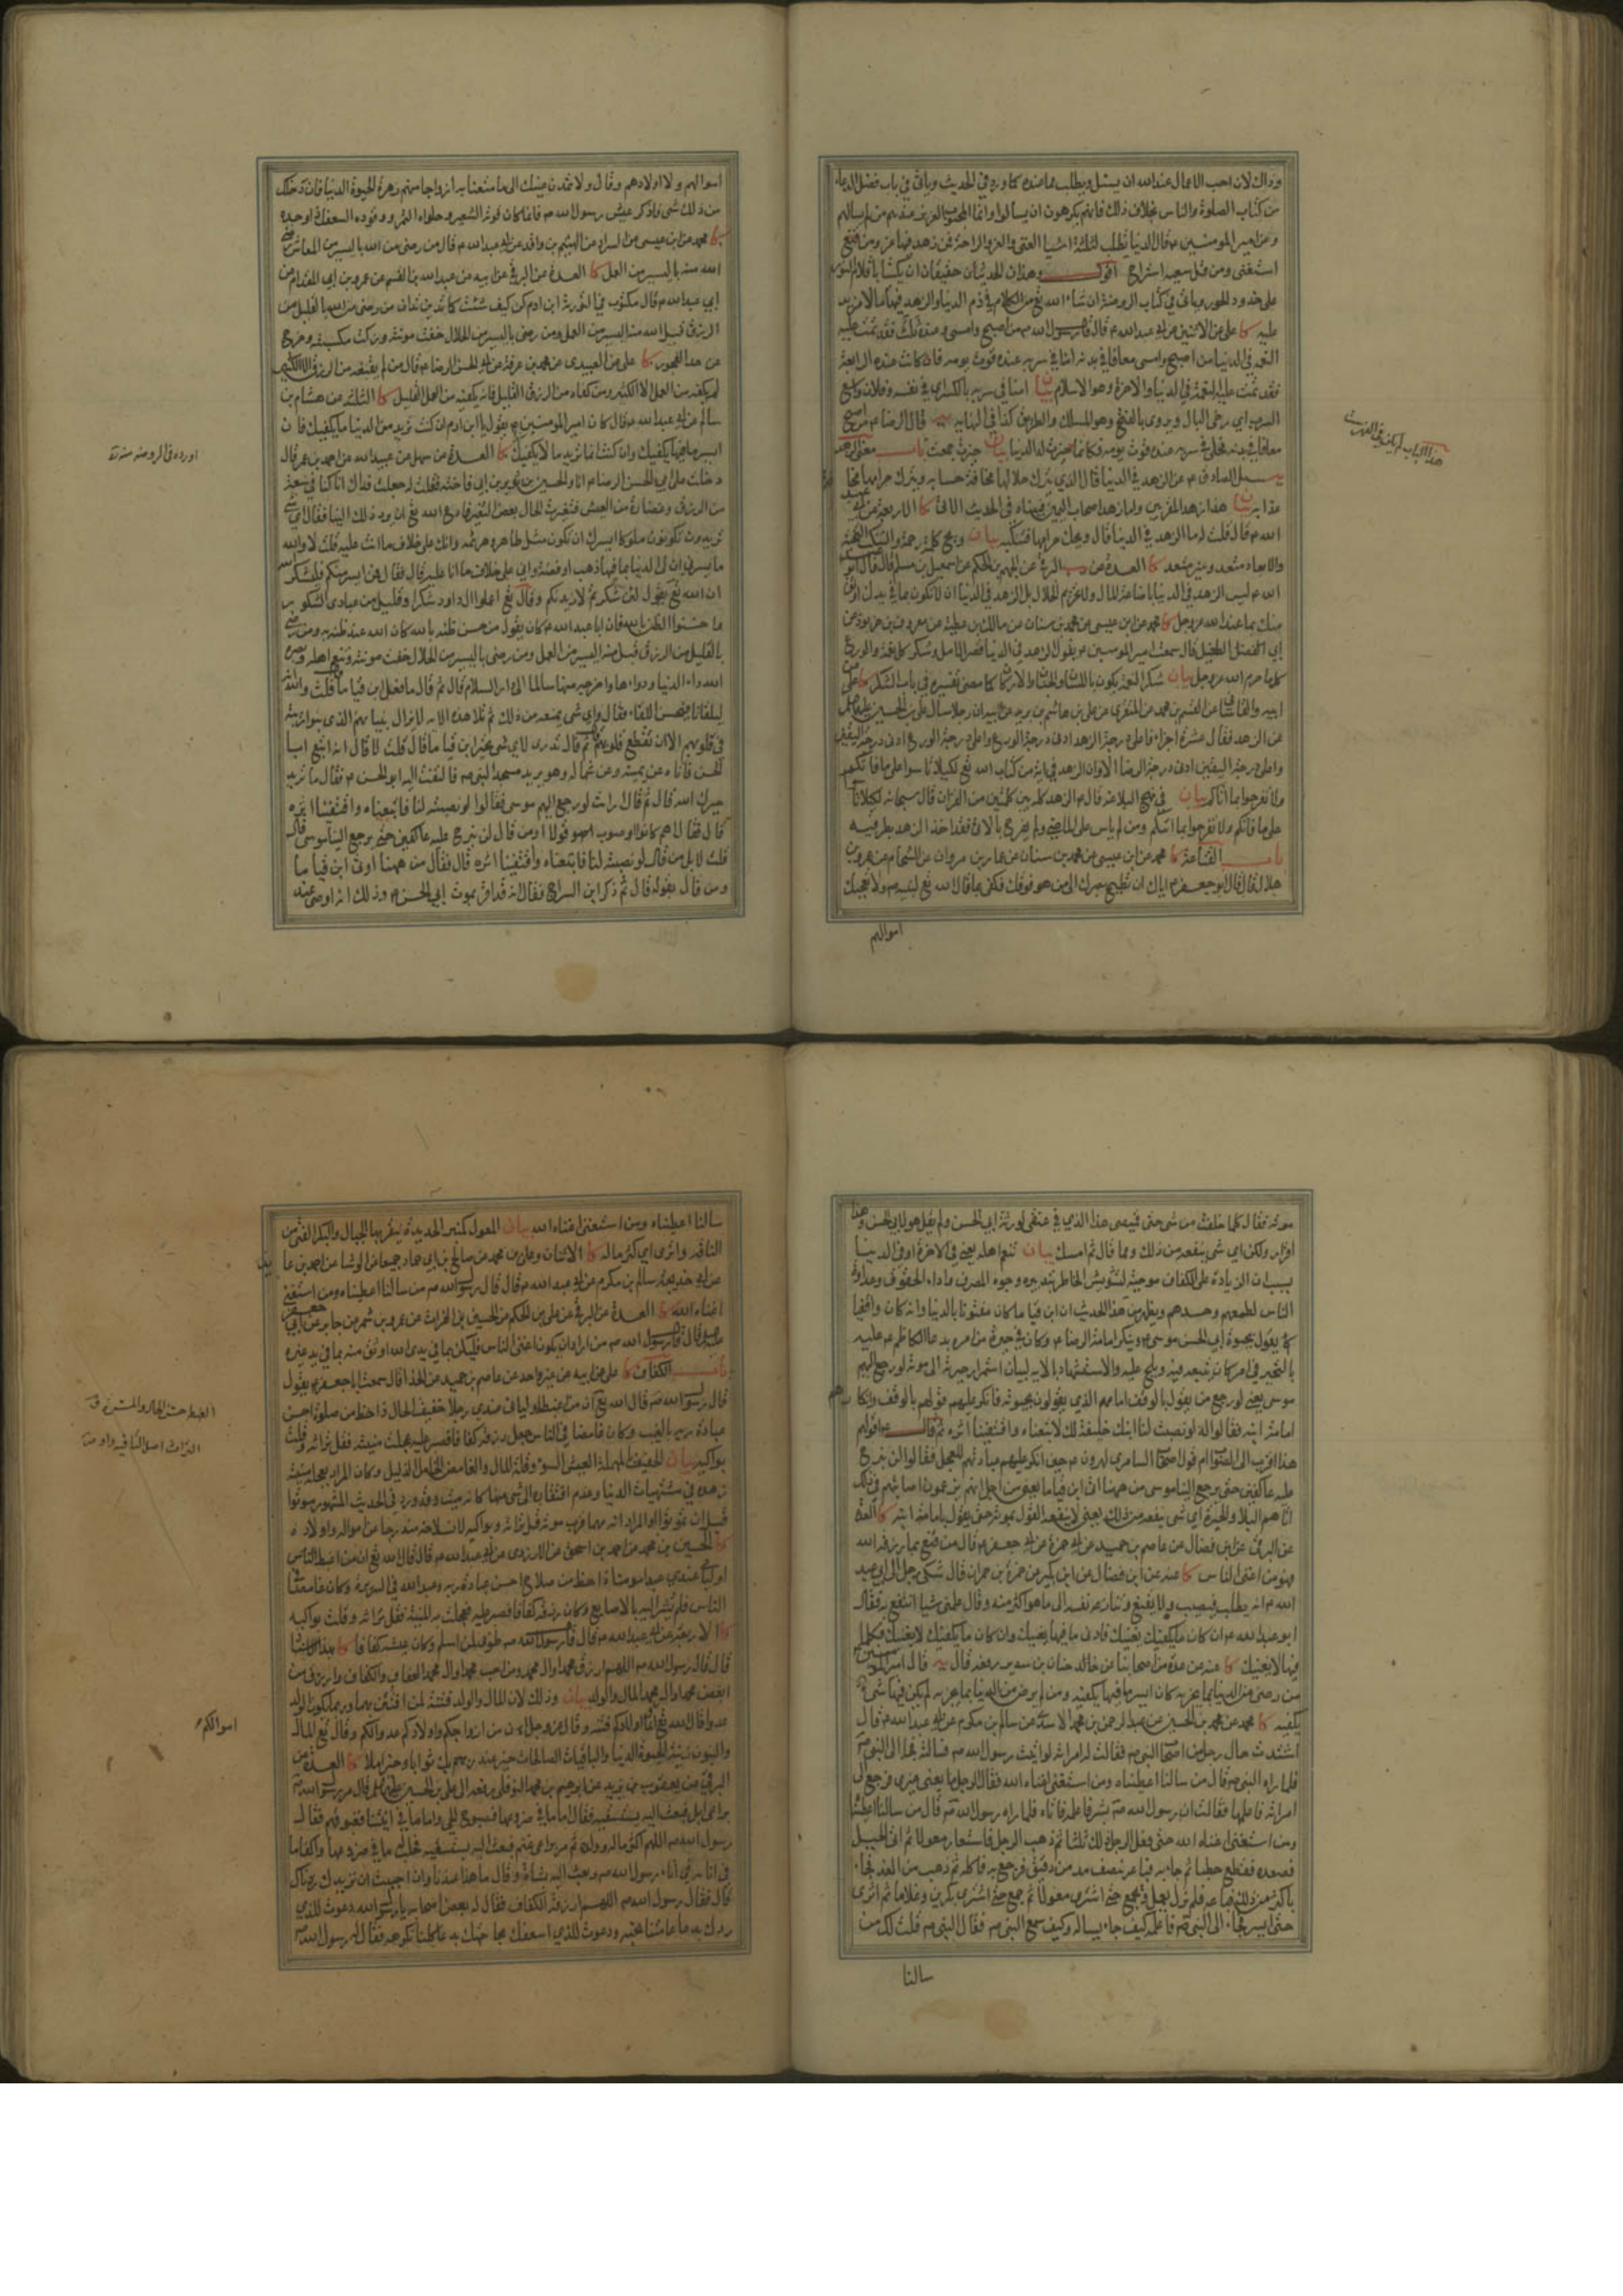 وذلك لان احب الاعمال عند الله ان يسئل ويطلب مما عنده كما ورد في الحديث وياتي في باب فضل الدعاء
من كتاب الصلوة والناس بخلاف ذلك فانهم يكرهون ان يسالوا وانما المحبوب العزيز عندهم من لم يسالهم
وعن امير المؤمنين ع قال الدنيا تطلب لثلثة اشياء الغنى والعز والراحة فمن زهد فيها عز ومن قنع
استغنى ومن قل سعيه استراح اقول وهذان الحديثان حقيقان ان يكتبا باقلام النور
على خدود الحور وياتي في كتاب الروضة ان شاء الله تع من الكلام في ذم الدنيا والزهد فيها ما لا مزيد
عليه كا علي عن الاثنين عن ابي عبد الله ع قال قال رسول الله ص من اصبح وامسى وعنده ثلث فقد تمت عليه
النعمة في الدنيا من اصبح وامسى معافا في بدنه امنا في سربه عنده قوت يومه فان كانت عنده الرابعة
فقد تمت عليه النعمة في الدنيا والاخرة وهو الاسلام بيان امنا في سربه بالكسر اي في نفسه وفلان واسع
السرب اي رخي البال ويروى بالفتح وهو المسلك والطريق كذا في النهاية يه قال الرضا ع من اصبح
معافا في بدنه مخلى في سربه عنده قوت يومه فكانما حيزت له الدنيا بيان حيزت جمعت باب معنى الزهد
يه سئل الصادق ع عن الزهد في الدنيا قال الذي يترك حلالها مخافة حسابه ويترك حرامها مخافة
عذابه بيان هذا زهد المقربين واما زهد اصحاب اليمين فبيناه في الحديث الاتي كا الاربعة عن ابي عبد
الله ع قال قلت له ما الزهد في الدنيا قال ويحك حرامها فتنكبه بيان ويح كلمة رحمة والتنكب التجنب
والابعاد متعد وغير متعد كا العدة عن البرقي عن الجهم بن الحكم عن اسمعيل بن مسلم قال قال ابو عبد
الله ع ليس الزهد في الدنيا باضاعة المال ولا تحريم الحلال بل الزهد في الدنيا ان لا تكون بما في يدك اوثق
منك بما عند الله عز وجل كا محمد عن ابن عيسى عن محمد بن سنان عن مالك بن عطية عن معروف بن خربوذ عن
ابي الطفيل قال سمعت امير المؤمنين ع يقول الزهد في الدنيا قصر الامل وشكر كل نعمة والورع عن
كل ما حرم الله عز وجل بيان شكر النعمة يكون باللسان والجنان والاركان كما مضى تفسيره في باب الشكر كا علي عن
ابيه والقاساني عن القسم بن محمد عن المنقري عن علي بن هاشم بن بريد عن ابيه ان رجلا سال علي بن الحسين عليه السلم
عن الزهد فقال عشرة اجزاء فاعلى درجة الزهد ادنى درجة الورع واعلى درجة الورع ادنى درجة اليقين
واعلى درجة اليقين ادنى درجة الرضا الا وان الزهد في اية من كتاب الله تع لكيلا تاسوا على ما فاتكم
ولا تفرحوا بما اتاكم بيان في نهج البلاغة قال ع الزهد كله بين كلمتين من القران قال سبحانه لكيلا تاسوا
على ما فاتكم ولا تفرحوا بما اتيكم ومن لم ياس على الماضي ولم يفرح بالاتي فقد اخذ الزهد بطرفيه
باب القناعة كا محمد عن ابن عيسى عن محمد بن سنان عن عمار بن مروان عن الشحام عن عمرو بن
هلال قال قال ابو جعفر ع اياك ان تطمح بصرك الى من هو فوقك فكفى بما قال الله تع لنبيه ص ولا تعجبك
اموالهم
اموالهم ولا اولادهم وقال ولا تمدن عينيك الى ما متعنا به ازواجا منهم زهرة الحيوة الدنيا فان دخلك
من ذلك شئ فاذكر عيش رسول الله ص فانما كان قوته الشعير وحلواه التمر ووقوده السعف اذا وجده
كا محمد عن ابن عيسى عن السراد عن الهيثم بن واقد عن ابي عبد الله ع قال من رضى من الله باليسير من المعاش رضي
الله منه باليسير من العمل كا العدة عن البرقي عن ابيه عن عبد الله بن القسم عن عمرو بن ابي المقدام عن
ابي عبد الله ع قال مكتوب في التورية ابن ادم كن كيف شئت كما تدين تدان من رضى من الله بالقليل من
الرزق قبل الله منه اليسير من العمل ومن رضى باليسير من الحلال خفت مونته وزكت مكسبته وخرج
من حد الفجور كا علي عن العبيدي عن محمد بن عرفة عن ابي الحسن الرضا ع قال من لم يقنعه من الرزق الا الكثير
لم يكفه من العمل الا الكثير ومن كفاه من الرزق القليل فانه يكفيه من العمل القليل كا الثلثة عن هشام بن
سالم عن ابي عبد الله ع قال كان امير المؤمنين ع يقول يا ابن ادم ان كنت تريد من الدنيا ما يكفيك فان
ايسر ما فيها يكفيك وان كنت انما تريد ما لا يكفيك كا العدة عن سهل عن عبيد الله عن احمد بن عمر قال
دخلت على ابي الحسن الرضا ع انا والحسين بن ثوير بن ابي فاختة فقلت له جعلت فداك انا كنا في سعة
من الرزق وغضارة من العيش فتغيرت الحال بعض التغير فادع الله تع ان يرد ذلك الينا فقال اي شئ
تريدون تكونون ملوكا ايسرك ان تكون مثل طاهر وهرثمة وانك على خلاف ما انت عليه قلت لا والله
ما يسرني ان لي الدنيا بما فيها ذهبا وفضة واني على خلاف ما انا عليه قال فقال فمن ايسر منكم فليشكر الله
ان الله تع يقول لئن شكرتم لازيدنكم وقال تع اعملوا ال داود شكرا وقليل من عبادي الشكور
واحسنوا الظن بالله فان ابا عبد الله ع كان يقول من حسن ظنه بالله كان الله عند ظنه به ومن رضي
بالقليل من الرزق قبل منه اليسير من العمل ومن رضى باليسير من الحلال خفت مونته وتنعم اهله وبصره
الله داء الدنيا ودواءها واخرجه منها سالما الى دار السلام قال ثم قال ما فعل ابن قياما قلت والله انه
ليلقانا فيحسن اللقاء فقال واي شئ يمنعه من ذلك ثم تلا هذه الاية لا يزال بنيانهم الذي بنوا ريبة
في قلوبهم الا ان تقطع قلوبهم ثم قال تدري لاي شئ تحير ابن قياما قال قلت لا قال انه اتبع ابا
الحسن فاتاه عن يمينه وعن شماله وهو يريد مسجد النبي ص فالتفت اليه ابو الحسن ع فقال ما تريد
حيرك الله قال ثم قال ارايت لو رجع اليهم موسى فقالوا لو نصبته لنا فاتبعناه واقتفينا اثره
قال فقال اهم كانوا اصوب قولا او من قال لن نبرح عليه عاكفين حتى يرجع الينا موسى قال
قلت لا بل من قال لو نصبته لنا فاتبعناه واقتفينا اثره قال فقال من ههنا اوتي ابن قياما
ومن قال بقوله قال ثم ذكر ابن السراج فقال انه قد اقر بموت ابي الحسن ع وذلك انه اوصى عند
موته فقال كلما خلفت من شئ حتى قميصي هذا الذي في عنقي لورثة ابي الحسن ولم يقل هو لابي الحسن وهذا
اقرار ولكن اي شئ ينفعه من ذلك ومما قال ثم امسك بيان تنعم اهله يعني في الاخرة او في الدنيا
بسبب ان الزيادة على الكفاف موجبة لتشويش الخاطر بتدبيره وجوه المصرف واداء الحقوق وعداوة
الناس لطمعهم وحسدهم ويظهر من هذا الحديث ان ابن قياما كان مفتونا بالدنيا وانه كان واقفيا
بالتحير في امر كان تبعه فيه ويلج عليه والاستشهاد بالاية لبيان استمرار حيرته الى موته لو رجع اليهم
موسى يعني لو رجع من يقول بالوقف امامهم الذي يقولون بحيوته فانكر عليهم قولهم بالوقف وانكارهم
امامة ابنه فقالوا له لو نصبت لنا ابنك خليفة لك لاتبعناه واقتفينا اثره ثم قال ع اقولهم
عليه عاكفين حتى يرجع الينا موسى من ههنا اتى ابن قياما يعني من اجل انهم
عن البرقي عن ابن فضال عن عاصم بن حميد عن ابي حمزة عن ابي جعفر ع قال من قنع بما رزقه الله
فهو من اغنى الناس كا عنه عن ابن فضال عن ابن بكير عن حمزة بن حمران قال شكى رجل الى ابي عبد
الله ع انه يطلب فيصيب ولا يقنع وتنازعه نفسه الى ما هو اكثر منه وقال علمني شيئا انتفع به فقال
ابو عبد الله ع ان كان ما يكفيك يغنيك فادنى ما فيها يغنيك وان كان ما يكفيك لا يغنيك فكلما
فيها لا يغنيك كا عنه عن عدة من اصحابنا عن حنان بن سدير رفعه قال يه قال امير المؤمنين ع
من رضى من الدنيا بما يجزيه كان ايسر ما فيها يكفيه ومن لم يرض من الدنيا بما يجزيه لم يكن فيها شئ
يكفيه كا محمد عن محمد بن الحسين عن عبد الرحمن بن محمد الاسدي عن سالم بن مكرم عن ابي عبد الله ع قال
اشتدت حال رجل من اصحاب النبي ص فقالت له امراته لو اتيت رسول الله ص فسالته فجاء الى النبي ص
فلما راه النبي ص قال من سالنا اعطيناه ومن استغنى اغناه الله فقال الرجل ما يعني غيري فرجع الى
امراته فاعلمها فقالت ان رسول الله ص بشر فاعلمه فاتاه فلما راه رسول الله ص قال من سالنا اعطيناه
ومن استغنى اغناه الله حتى فعل الرجل ذلك ثلثا ثم ذهب الرجل فاستعار معولا ثم اتى الجبل
فصعده فقطع حطبا ثم جاء به فباعه بنصف مد من دقيق فرجع به فاكله ثم ذهب من الغد فجاء
باكثر من ذلك فباعه فلم يزل يعمل ويجمع حتى اشترى معولا ثم جمع حتى اشترى بكرين وغلاما ثم اثرى
حتى ايسر فجاء الى النبي ص فاعلمه كيف جاء يساله وكيف سمع النبي ص فقال النبي ص قلت لك من
سالنا
سالنا اعطيناه ومن استغنى اغناه الله بيان المعول كمنبر الحديدة ينقر بها الجبال والبكر الفتي من
الناقة واثرى اي كثر ماله كا الاثنان وعلي بن محمد عن صالح بن ابي حماد جميعا عن الوشا عن احمد بن عائذ
عن ابي خديجة سالم بن مكرم عن ابي عبد الله ع قال قال رسول الله ص من سالنا اعطيناه ومن استغنى
اغناه الله كا العدة عن البرقي عن علي بن الحكم عن الحسين بن الفرات عن عمرو بن شمر عن جابر عن ابي جعفر
ع قال قال رسول الله ص من اراد ان يكون اغنى الناس فليكن بما في يدي الله اوثق منه بما في يد غيره
باب الكفاف كا علي عن ابيه عن غير واحد عن عاصم بن حميد عن الحذاء قال سمعت ابا جعفر ع يقول
قال رسول الله ص قال الله تع ان من اغبط اوليائي عندي رجلا خفيف الحال ذا حظ من صلوة احسن
عبادة ربه بالغيب وكان غامضا في الناس جعل رزقه كفافا فصبر عليه عجلت منيته فقل تراثه وقلت
بواكيه
زهده في مشتهيات الدنيا وعدم افتقاره الى شئ منها كانه ميت وقد ورد في الحديث المشهور موتوا
قبل ان تموتوا او المراد انه مهما قرب موته قل تراثه وبواكيه لانسلاخه متدرجا عن امواله واولاده
كا الحسين بن محمد عن احمد بن اسحق عن الازدي عن ابي عبد الله ع قال قال الله تع ان من اغبط الناس
اوليائي عندي عبد مومن ذا حظ من صلاح احسن عبادة ربه وعبد الله في السريرة وكان غامضا في
الناس فلم يشر اليه بالاصابع وكان رزقه كفافا فصبر عليه فعجلت به المنية فقل تراثه وقلت بواكيه
كا الاربعة عن ابي عبد الله ع قال قال رسول الله ص طوبى لمن اسلم وكان عيشه كفافا كا بهذا الاسناد
قال قال رسول الله ص اللهم ارزق محمدا وال محمد ومن احب محمدا وال محمد العفاف والكفاف وارزق من
ابغض محمدا وال محمد المال والولد بيان وذلك لان المال والولد فتنة لمن افتتن بهما وربما يكون الولد
عدوا قال الله تع انما اولادكم فتنة وقال عز وجل ان من ازواجكم واولادكم عدوا لكم وقال تع المال
والبنون زينة الحيوة الدنيا والباقيات الصالحات خير عند ربك ثوابا وخير املا كا العدة عن
البرقي عن يعقوب بن يزيد عن ابراهيم بن محمد النوفلي رفعه الى علي بن الحسين عليه السلم قال مر رسول الله ص
براعي ابل فبعث اليه يستسقيه فقال اما ما في ضروعها فصبوح الحي واما ما في انيتنا فغبوقهم فقال
رسول الله ص اللهم اكثر ماله وولده ثم مر براعي غنم فبعث اليه يستسقيه فحلب له ما في ضروعها واكفا ما
في انائه في اناء رسول الله ص وبعث اليه بشاة وقال ما هذا عندنا وان احببت ان نزيدك زدناك
قال فقال رسول الله ص اللهم ارزقه الكفاف فقال له بعض اصحابه يا رسول الله دعوت للذي
ردك بدعاء عامتنا نحبه ودعوت للذي اسعفك بحاجتك بدعاء كلنا نكرهه فقال رسول الله ص
اموالكم